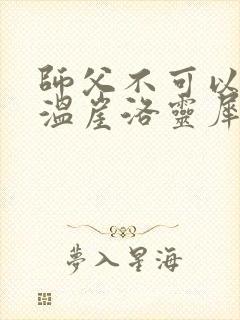 師父不可以
溫崖洛靈犀
夢入星海